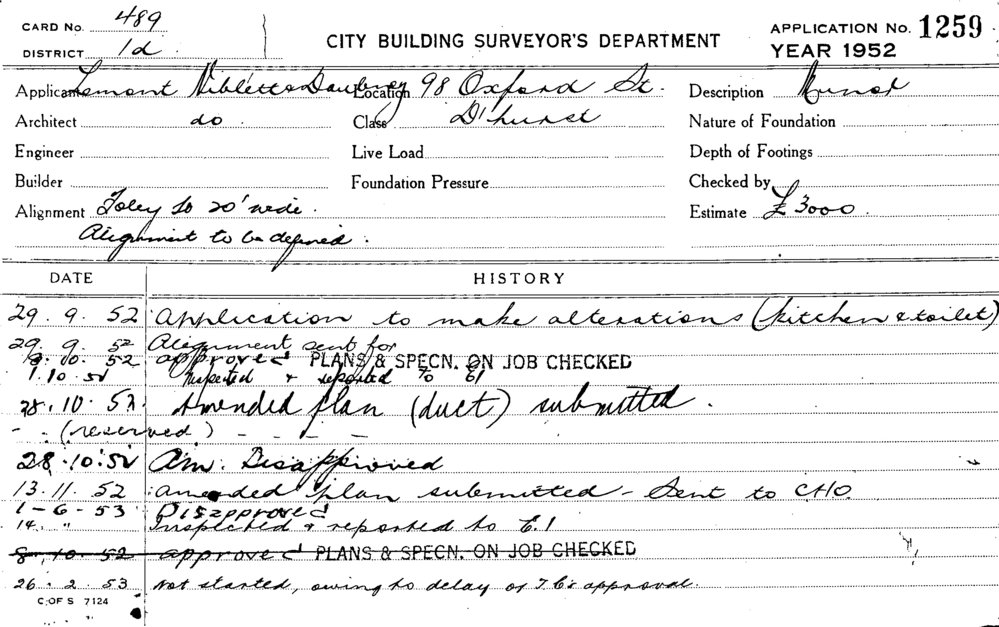 CARD No. 489
DISTRICT 1d
CITY BUILDING SURVEYOR'S DEPARTMENT
APPLICATION No. 1259
YEAR 1952
Applicant Lamont Niblett & Daubney Location 98 Oxford St. Description
Architect do Class D'hurst Nature of Foundation
Engineer Live Load Depth of Footings
Builder Foundation Pressure Checked by
Alignment Foley to 20' wide. Estimate £ 3000
Alignment to be defined.
DATE HISTORY
29. 9. 52 Application to make alterations (kitchen & toilet)
29. 9. 52 Alignment sent for
8. 10. 52 approved PLANS & SPECN. ON JOB CHECKED
1.10.52 Inspected & reported to E1
28.10.52. Amended plan (duct) submitted.
- . (reserved) - - - -
28.10.52 Am. Disapproved
13.11.52 Amended plan submitted - Sent to CHO
1-6-53 Disapproved
14. " Inspected & reported to E.1
8. 10. 52 approved PLANS & SPECN. ON JOB CHECKED
26. 2. 53 Not started, owing to delay of approval.
C. OF S 7124